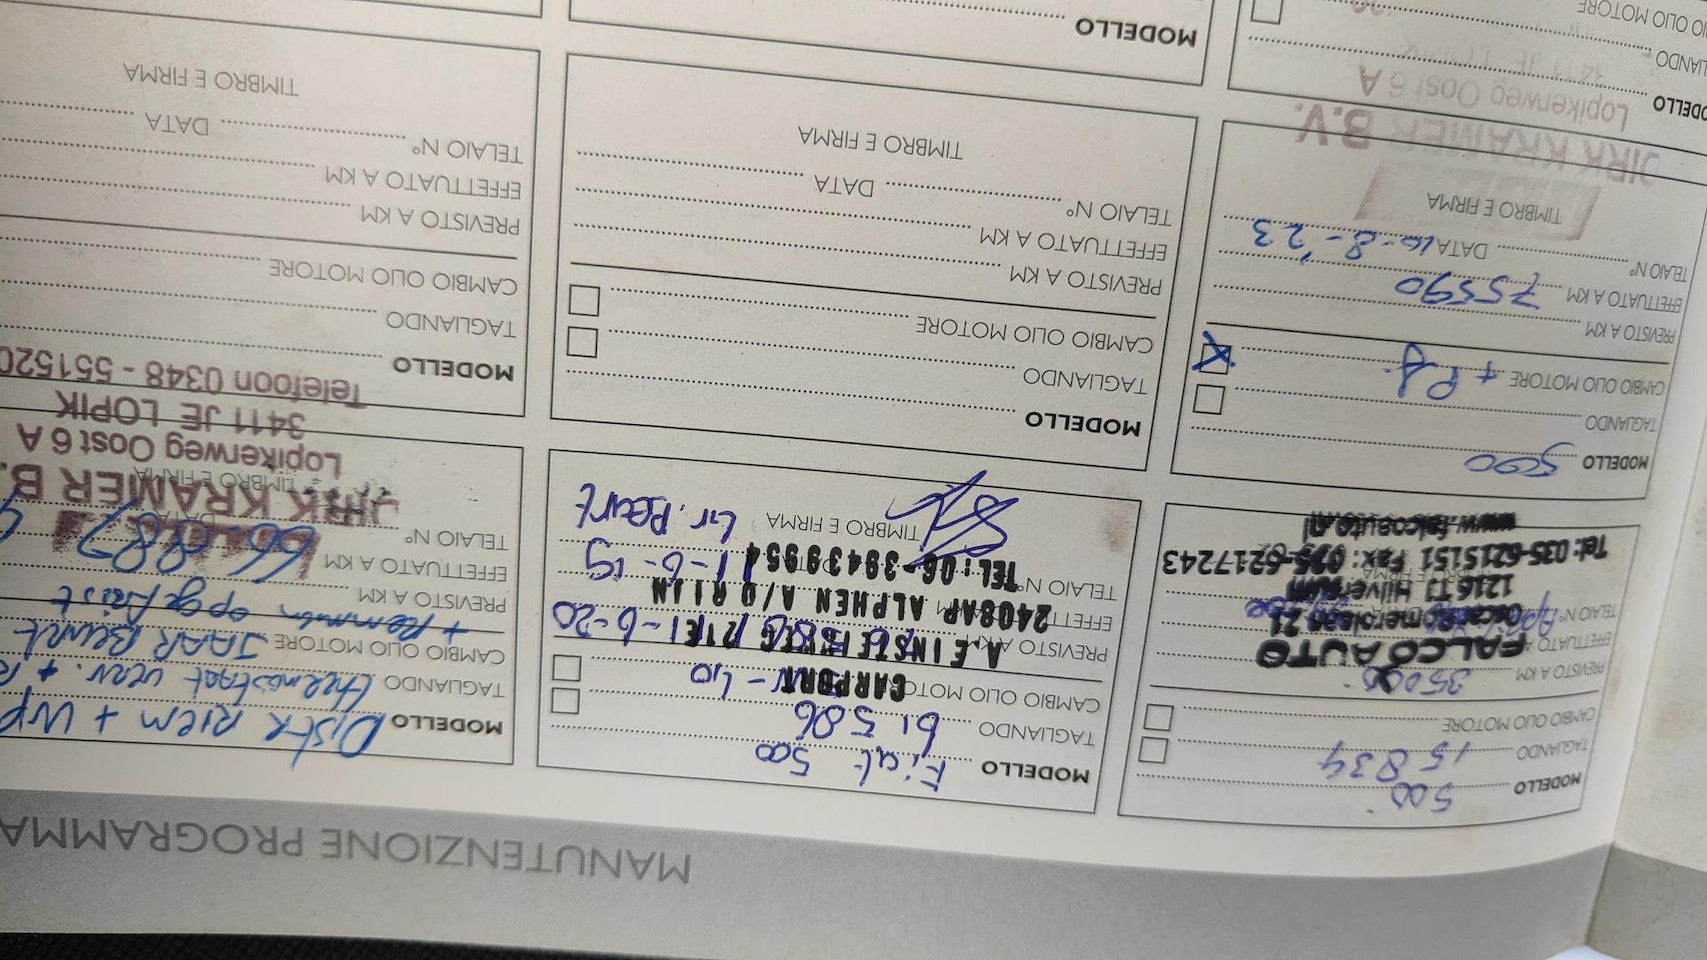 MANUTENZIONE PROGRAMMA
MODELLO 500
TAGLIANDO 15834
CAMBIO OLIO MOTORE
PREVISTO A KM 35000
EFFETTUATO A
TELAIO N°
FALCO AUTO
Oscar Romerolaan 21
1216 TJ Hilversum
Tel: 035-6215151 Fax: 035-6217243
www.falcoauto.nl
MODELLO Fiat 500
TAGLIANDO 61586
CAMBIO OLIO MOTO
PREVISTO A K 1-6-20
EFFETT
TELAIO N° 1-6-19
TIMBRO E FIRMA Gr. Beurt
CARPORT
A. EINSTEINWEG
2408AP ALPHEN A/D RIJN
TEL: 06-39439954
MODELLO Distr Riem + WP
TAGLIANDO thermostaat verv. + R
CAMBIO OLIO MOTORE JAAR Beurt
PREVISTO A KM + Remmen opgefrist
EFFETTUATO A KM 66.887
TELAIO N°
DATA
TIMBRO E FIRMA
JIRK KRAMER B.
Lopikerweg Oost 6 A
3411 JE LOPIK
Telefoon 0348 - 551520
MODELLO 500
TAGLIANDO
CAMBIO OLIO MOTORE
PREVISTO A KM
EFFETTUATO A KM 75590
TELAIO N° DATA 10-8-23
TIMBRO E FIRMA
JIRK KRAMER B.V.
Lopikerweg Oost 6 A
3411 JE
MODELLO
TAGLIANDO
CAMBIO OLIO MOTORE
PREVISTO A KM
EFFETTUATO A KM
TELAIO N° DATA
TIMBRO E FIRMA
MODELLO
TAGLIANDO
CAMBIO OLIO MOTORE
PREVISTO A KM
EFFETTUATO A KM
TELAIO N° DATA
TIMBRO E FIRMA
MODELLO
LIANDO
IO OLIO MOTORE
MODELLO